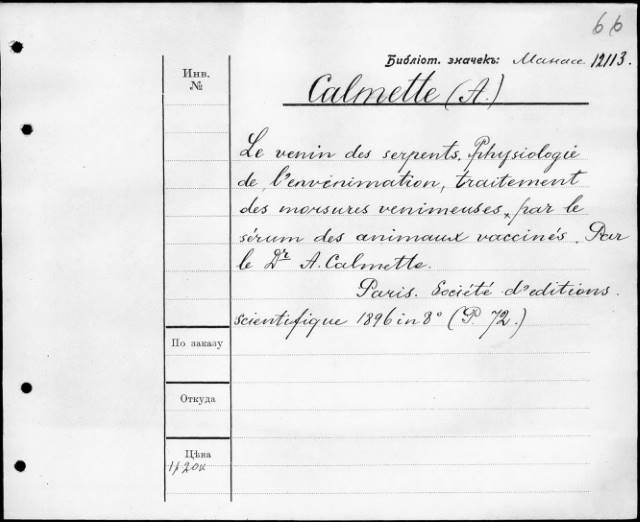 66
Библіот. значекъ: Манасе. 12113.
Инв.
№
Calmette (A.)
Le venin des serpents. Physiologie
de l'envenimation, traitement
des morsures venimeuses, par le
sérum des animaux vaccinés. Par
le Dr A. Calmette.
Paris. Société d'editions
scientifique 1896 in 8° (P. 72.)
По заказу
Откуда
Цѣна
1р 20к